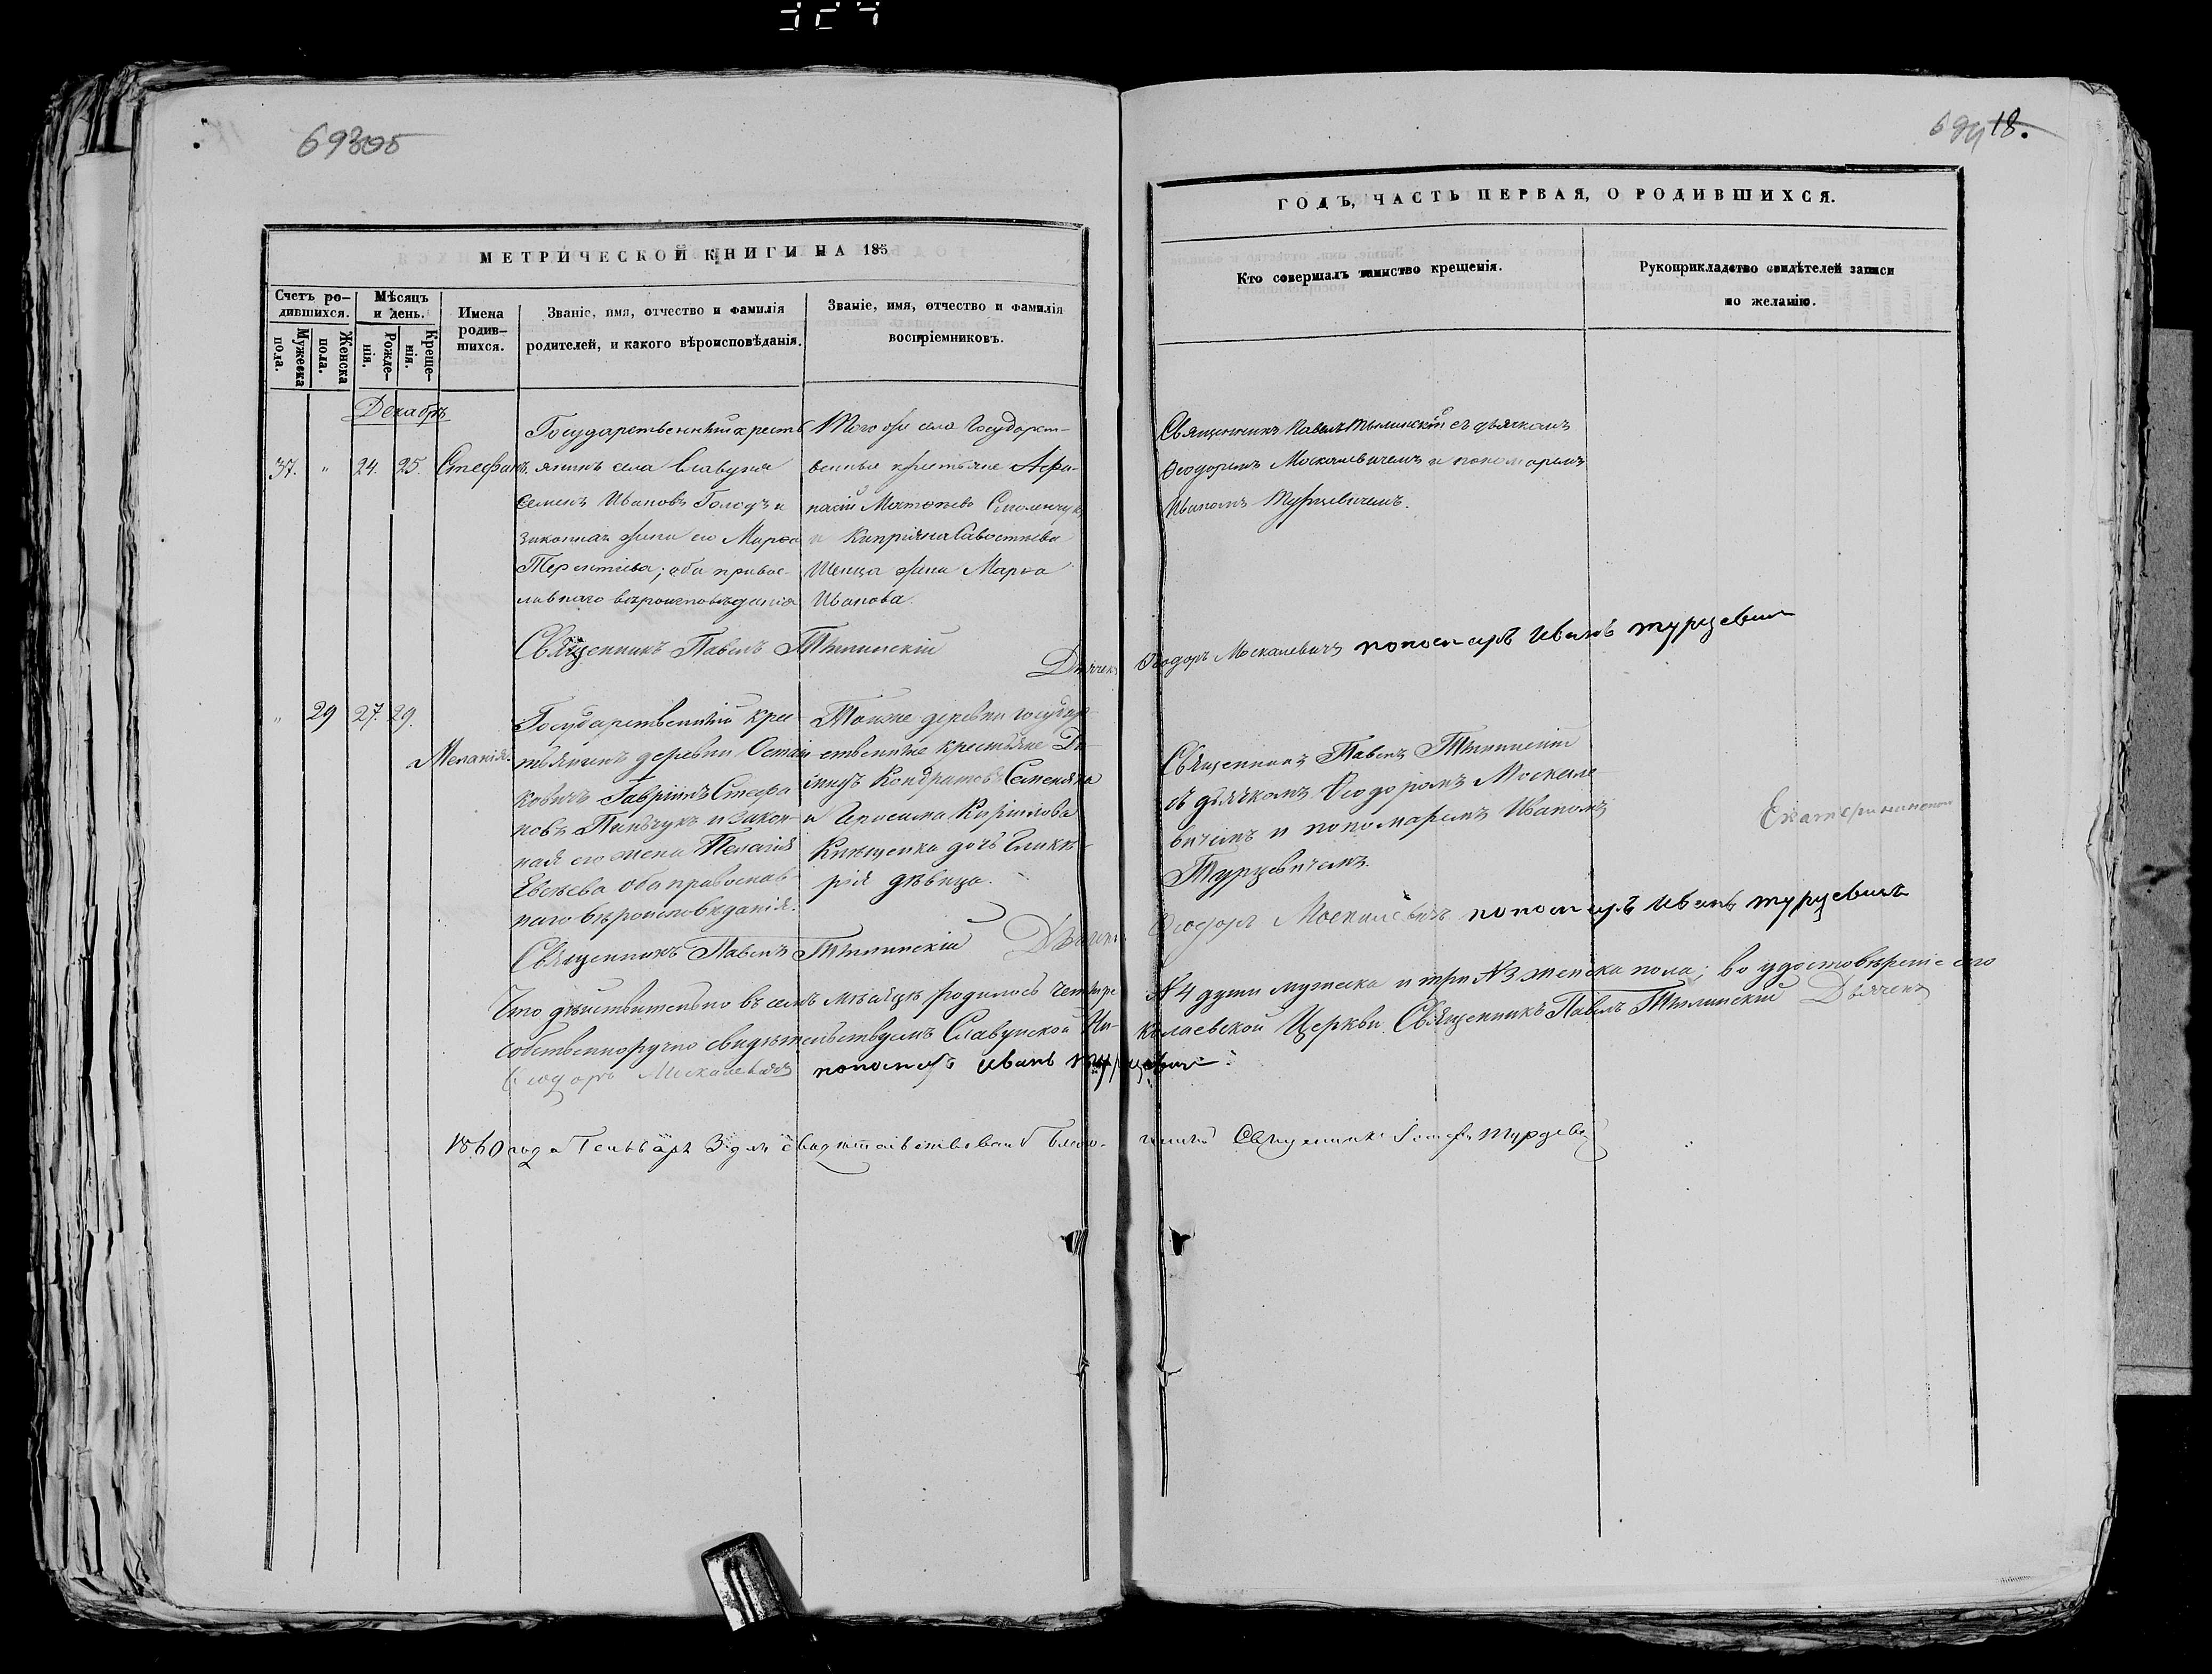 69305
69 18.
МЕТРИЧЕСКОЙ КНИГИ НА 185
ГОДЪ, ЧАСТЬ ПЕРВАЯ, О РОДИВШИХСЯ.
Счетъ ро-
дившихся.
Мужеска
пола.
Женска
пола.
Мѣсяцъ
и день.
Рожде-
нія.
Креще-
нія.
Имена
родив-
шихся.
Званіе, имя, отчество и фамилія
родителей, и какого вѣроисповѣданія.
Званіе, имя, отчество и фамилія
воспріемниковъ.
Кто совершалъ таинство крещенія.
Рукоприкладство свидѣтелей записи
по желанію.
Декабрь
37. " 24. 25. Стефанъ.
Государственный кресть
янинъ села Славуня
Семенъ Ивановъ Голодъ и
законная жена его Марѳа
Терентіева; оба правос-
лавнаго вѣроисповѣданія
Того же села Государст-
венные крестьяне Афа-
насій Матѳеевъ Смолянчукъ
и Кипріяна Савостіева
жена Марѳа
Иванова.
Священникъ Павелъ Тыминскій съ дьячкомъ
Ѳеодоромъ Москалевичемъ и пономаремъ
Иваномъ Турцевичемъ.
Священникъ Павелъ Тыминскій Дьячекъ Ѳеодоръ Москалевичъ пономарь Иванъ Турцевичъ
" 29 27. 29.
Меланія.
Государственный крес-
тьянинъ деревни Остай
ковичъ Гавріилъ Стефа
новъ Пинчукъ и закон-
ная его жена Пелагія
Евсѣева оба православ-
наго вѣроисповѣданія.
Тойже деревни государ-
ственные крестьяне Ди-
мидъ Кондратовъ Семеняка
и Герасима Кирилова
дочь Глике-
рія дѣвица.
Священникъ Павелъ Тыминскій
съ дьячкомъ Ѳеодоромъ Москале
вичемъ и пономаремъ Иваномъ
Турцевичемъ.
Священникъ Павелъ Тыминскій Дьячекъ Ѳеодоръ Москалевичъ пономарь Иванъ Турцевичъ
Что дѣйствительно въ семъ мѣсяцѣ родилось четыре № 4 души мужеска и три № 3 женска пола; во удостовѣреніе сего
собственноручно свидѣтельствуемъ Славунской Ни- колаевской Церкви Священникъ Павелъ Тыминскій Дьячекъ
Ѳеодоръ Москалевичъ пономарь Иванъ Турцевичъ
1860 года Генваря 3 дня свидѣтельствовалъ Благо- чинный Священникъ Турцевичъ